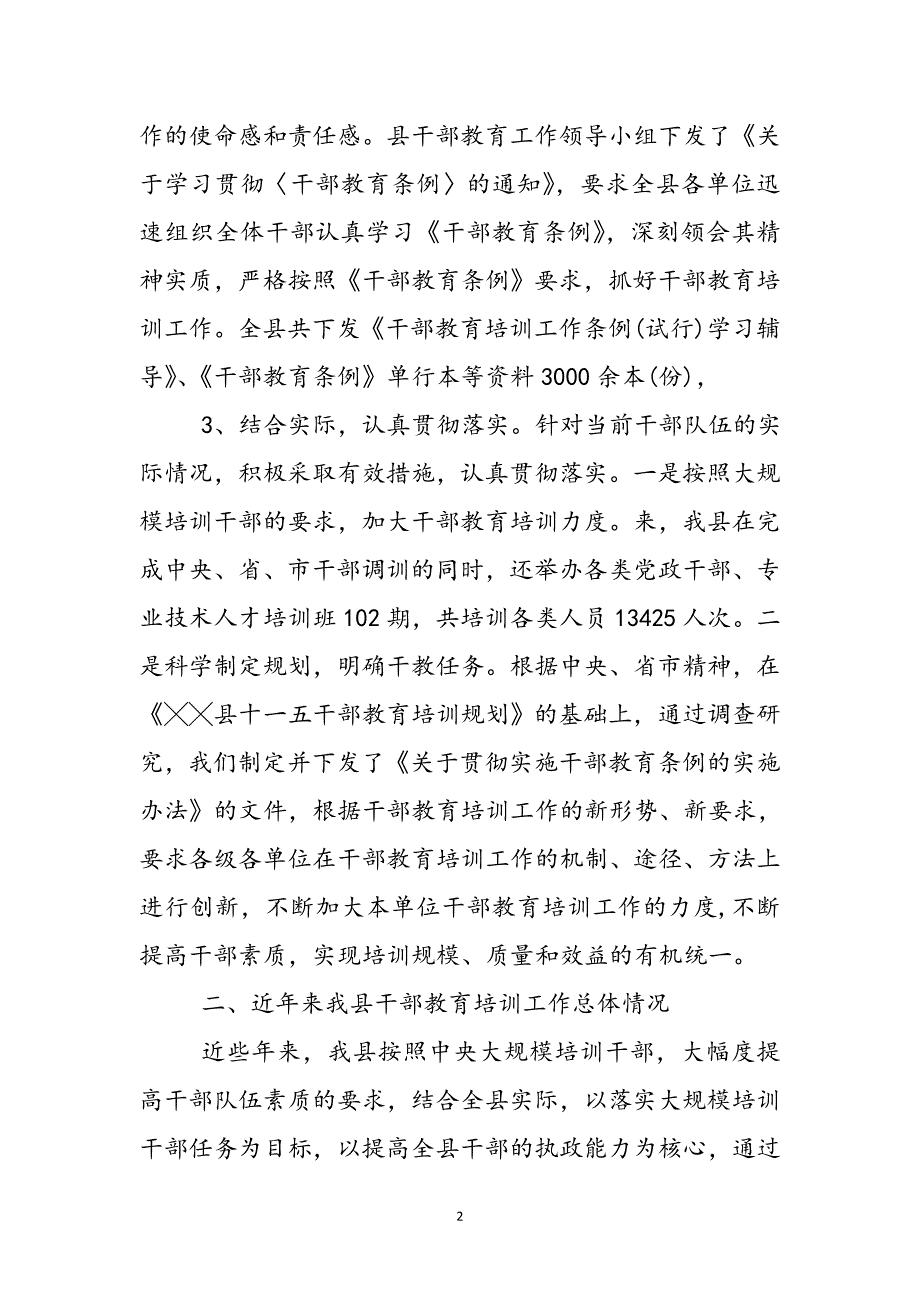 作的使命感和责任感。县干部教育工作领导小组下发了《关
于学习贯彻〈干部教育条例〉的通知》，要求全县各单位迅
速组织全体干部认真学习《干部教育条例》，深刻领会其精
神实质，严格按照《干部教育条例》要求，抓好干部教育培
训工作。全县共下发《干部教育培训工作条例(试行)学习辅
导》、《干部教育条例》单行本等资料 3000 余本(份)，
3、结合实际，认真贯彻落实。针对当前干部队伍的实
际情况，积极采取有效措施，认真贯彻落实。一是按照大规
模培训干部的要求，加大干部教育培训力度。来，我县在完
成中央、省、市干部调训的同时，还举办各类党政干部、专
业技术人才培训班 102 期，共培训各类人员 13425 人次。二
是科学制定规划，明确干教任务。根据中央、省市精神，在
《╳╳县十一五干部教育培训规划》的基础上，通过调查研
究，我们制定并下发了《关于贯彻实施干部教育条例的实施
办法》的文件，根据干部教育培训工作的新形势、新要求，
要求各级各单位在干部教育培训工作的机制、途径、方法上
进行创新，不断加大本单位干部教育培训工作的力度,不断
提高干部素质，实现培训规模、质量和效益的有机统一。
二、近年来我县干部教育培训工作总体情况
近些年来，我县按照中央大规模培训干部，大幅度提
高干部队伍素质的要求，结合全县实际，以落实大规模培训
干部任务为目标，以提高全县干部的执政能力为核心，通过
2